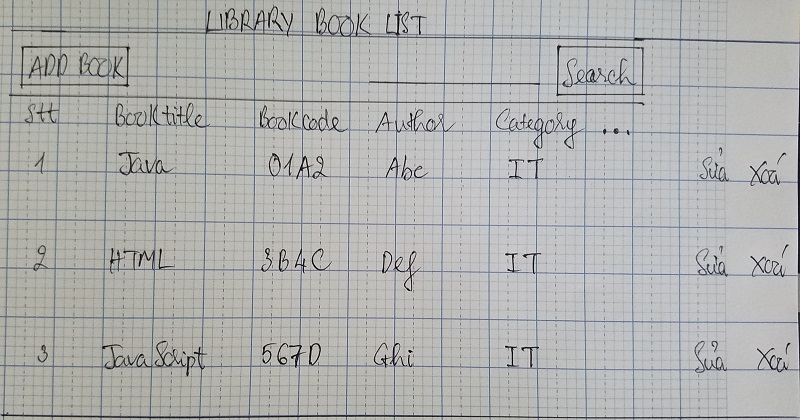 LIBRARY BOOK LIST
ADD BOOK Search
Stt Booktitle Bookcode Author Category ...
1 Java 01A2 Abc IT Sửa Xoá
2 HTML 3B4C Def IT Sửa Xoá
3 JavaScript 567D Ghi IT Sửa Xoá